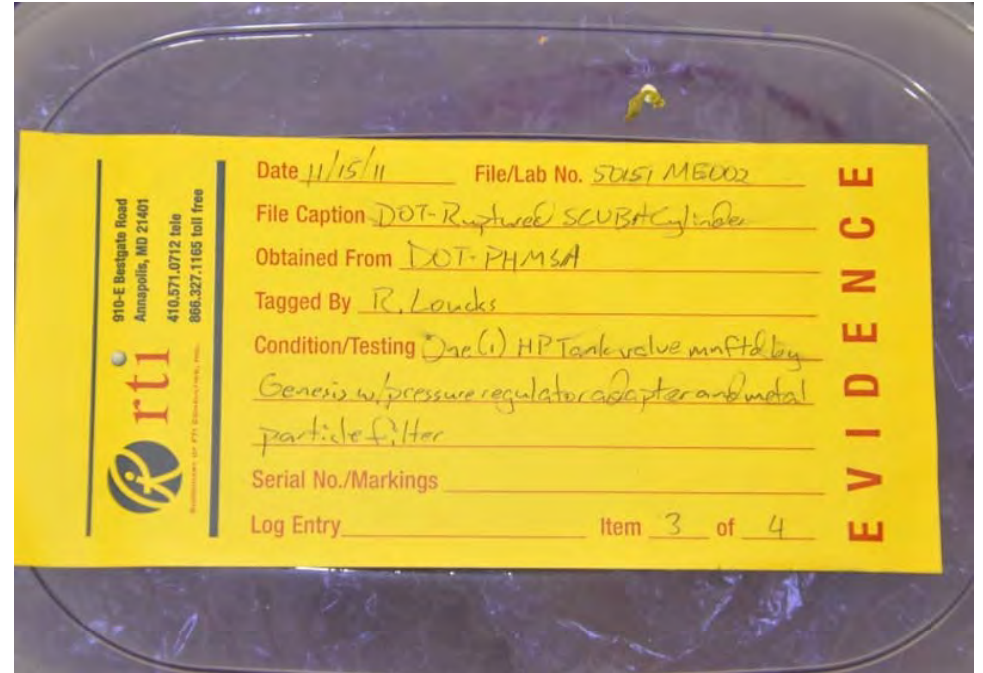 910-E Bestgate Road
Annapolis, MD 21401
410.571.0712 tele
866.327.1165 toll free
rti
Date 11/15/11 File/Lab No. 50151 ME002
File Caption DOT-Ruptured SCUBA Cylinder
Obtained From DOT-PHMSA
Tagged By R. Loucks
Condition/Testing One (1) HP Tank valve mnftd by
Genesis w/pressure regulator adapter and metal
particle filter
Serial No./Markings
Log Entry Item 3 of 4
EVIDENCE